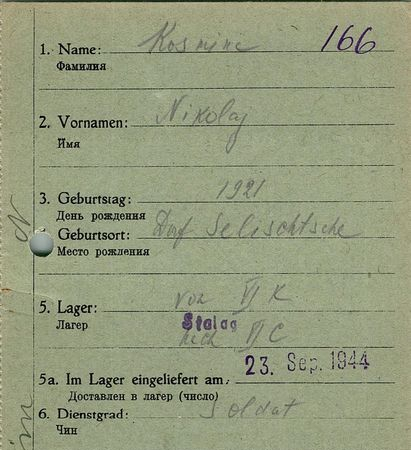 1. Name: Kosminc 166
Фамилия
2. Vornamen: Nikolaj
Имя
3. Geburtstag: 1921
День рождения
Geburtsort: Dorf Selischtsche
Место рождения
5. Lager: von VI K
Лагер Stalag
nach VI C
23. Sep. 1944
5a. Im Lager eingeliefert am:
Доставлен в лагер (число)
6. Dienstgrad: Soldat
Чин